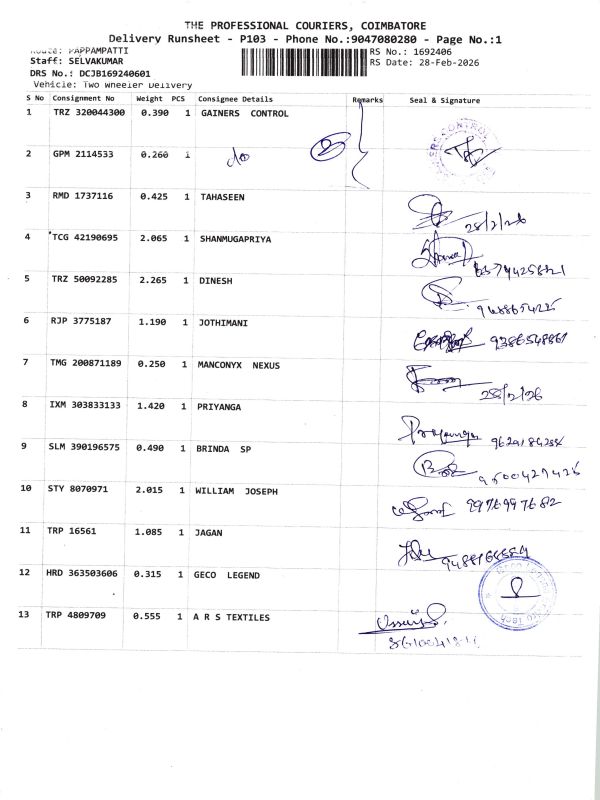 THE PROFESSIONAL COURIERS, COIMBATORE
Delivery Runsheet - P103 - Phone No.:9047080280 - Page No.:1
Route: PAPPAMPATTI
RS No.: 1692406
Staff: SELVAKUMAR
RS Date: 28-Feb-2026
DRS No.: DCJB169240601
Vehicle: Two Wheeler Delivery
S No Consignment No Weight PCS Consignee Details Remarks Seal & Signature
1 TRZ 320044300 0.390 1 GAINERS CONTROL
2 GPM 2114533 0.260 1 do
3 RMD 1737116 0.425 1 TAHASEEN
28/2/26
4 TCG 42190695 2.065 1 SHANMUGAPRIYA
5 TRZ 50092285 2.265 1 DINESH
6 RJP 3775187 1.190 1 JOTHIMANI
9386548861
7 TMG 200871189 0.250 1 MANCONYX NEXUS
28/2/26
8 IXM 303833133 1.420 1 PRIYANGA
Priyanga
9 SLM 390196575 0.490 1 BRINDA SP
10 STY 8070971 2.015 1 WILLIAM JOSEPH
9976997682
11 TRP 16561 1.085 1 JAGAN
12 HRD 363503606 0.315 1 GECO LEGEND
13 TRP 4809709 0.555 1 A R S TEXTILES